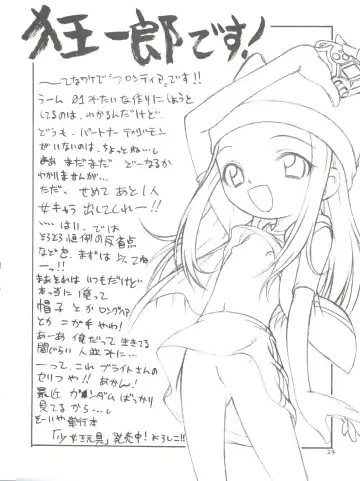 狂一郎です!
〜〜てなわけで「フロンティア」です!!
うーム 01みたいな作りにしようと
してるのは、わかるんだけど、
どうも、パートナーデジモン
がいないのは、ちょっとね…。
まあ まだまだ どーなるか
わかりませんが…
ただ、せめてあと1人
女キャラ 出してくれー!!
…… はい。では
そろそろ恒例の反省点
などを、まずは
ーっ!!
まあそれは いつもだけど
本当に 俺って
帽子 とか ロングヘア
とか ニガ手 やわ!
あーあ 俺だって生きてる
間ぐらい 人並みに…
ーって、これ ブライトさんの
セリフや!! あかん!
最近 ガンダムばっかり
見てるから…。
そーいや 単行本
「少女玩具」発売中! よろしこ!!
24